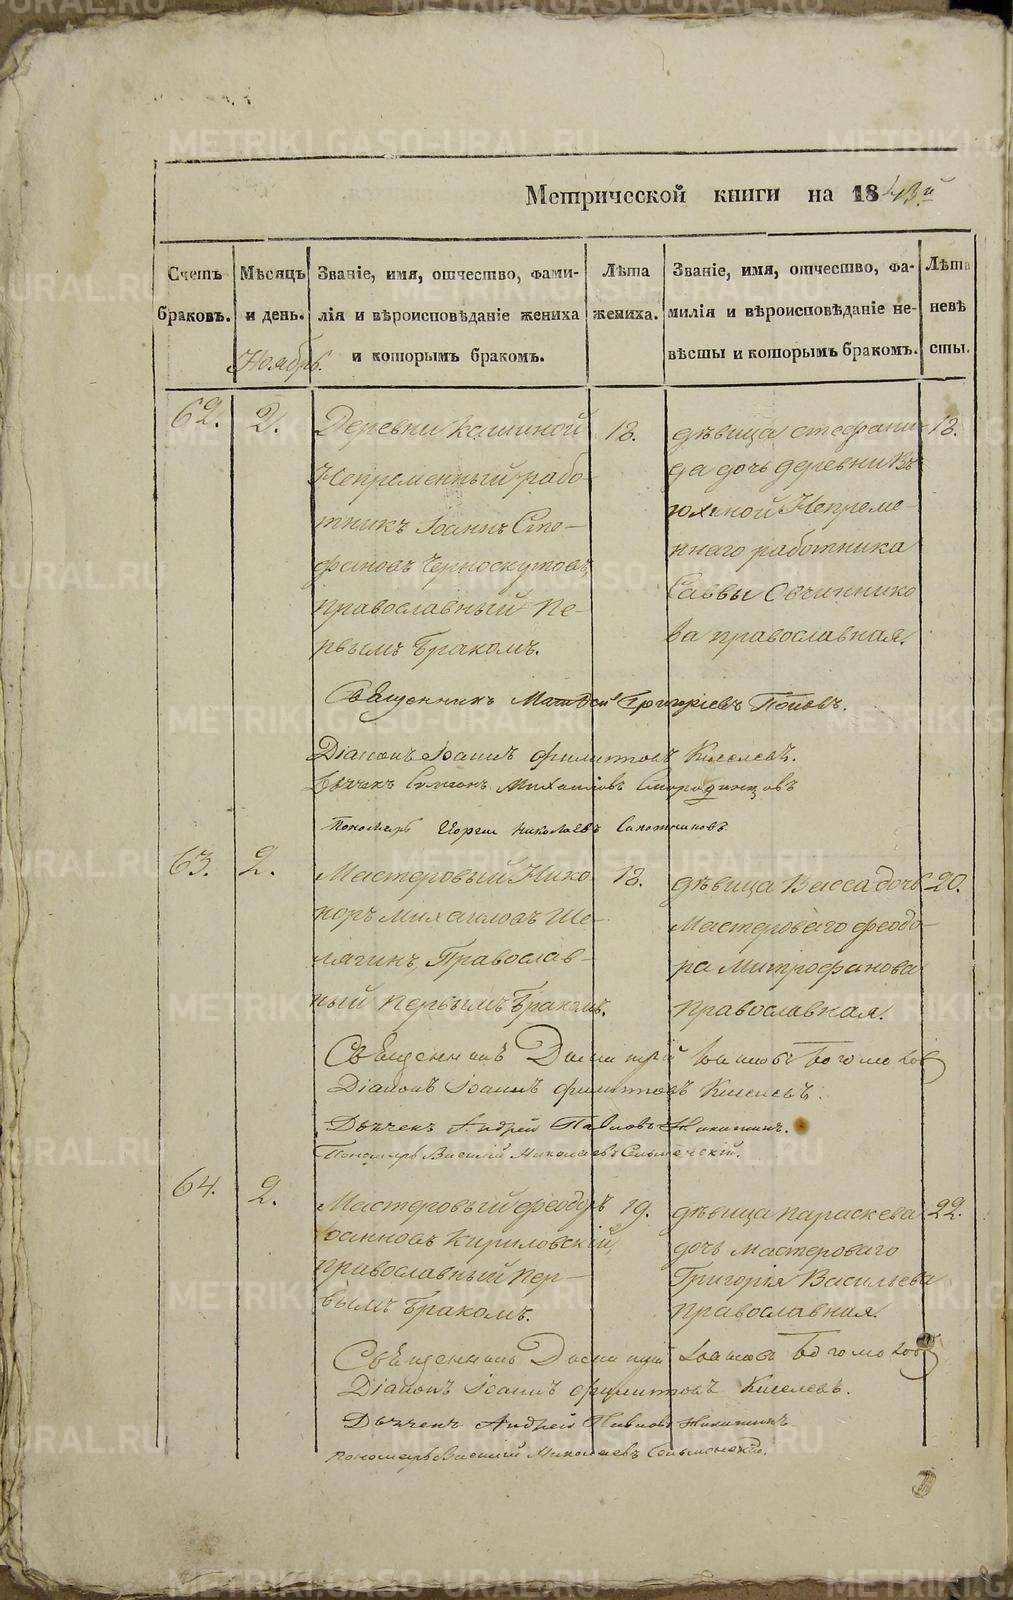 METRIKI.GASO-URAL.RU
Метрической книги на 1843й
Счетъ браковъ.
Мѣсяцъ и день.
Званіе, имя, отчество, фами-
лія и вѣроисповѣданіе жениха
и которымъ бракомъ.
Лѣта жениха.
Званіе, имя, отчество, фа-
милія и вѣроисповѣданіе не-
вѣсты и которымъ бракомъ.
Лѣта невѣ сты.
Ноябрь.
62. 2.
Деревни Кашиной
Непременный рабо-
тникъ Іоаннъ Сте-
фановъ Черноскутовъ,
православный пе-
рвымъ бракомъ.
18.
дѣвица стефани-
да дочь деревни Въ
юхиной Непреме-
ннаго работника
Саввы Овчиннико
ва православная.
18.
Священникъ Матѳей Григоріевъ Поповъ.
Діаконъ Іоаннъ Филиповъ Киселевъ.
Дьячекъ Симеонъ Михаиловъ
Пономарь Георгіи Николаевъ Сапожниковъ
63. 2.
Мастеровый Нико-
норъ Михаиловъ Ше-
лягинъ, Православ-
ный первымъ бракомъ.
18.
дѣвица Васса дочь
Мастероваго феодо-
ра Митрофанова
православная.
20.
Священникъ Димитрій Іоанновъ Богомолов
Діаконъ Іоаннъ Филиповъ Киселевъ.
Дьячекъ Андрей Павловъ Никитинъ.
Пономарь Василій Николаевъ Сельменскій.
64. 2.
Мастеровый феодоръ
Іоанновъ Кириловскій,
православный пер-
вымъ бракомъ.
19.
дѣвица параскева
дочь мастероваго
Григорія Васильева
православная.
22.
Священникъ Димитрій Іоанновъ Богомолов
Діаконъ Іоаннъ Филиповъ Киселевъ.
Дьячекъ Андрей Павловъ Никитинъ
Пономарь Василій Николаевъ Сельменскій.